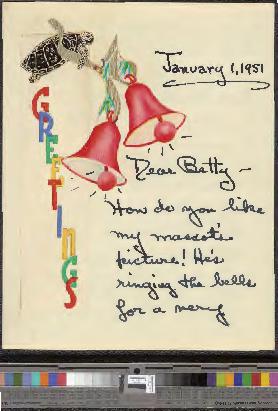 January 1, 1951
GREETINGS
Dear Betty -
How do you like
my mascot's
picture! He's
ringing the bells
for a merry